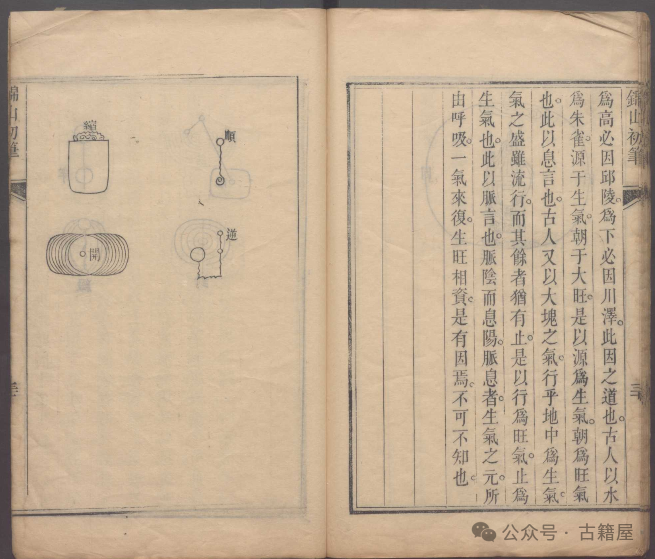 錦山初筆
三
爲高必因邱陵。爲下必因川澤。此因之道也。古人以水
爲朱雀。源于生氣。朝于大旺。是以源爲生氣。朝爲旺氣
也。此以息言也。古人又以大塊之氣。行乎地中爲生氣。
氣之盛雖流行。而其餘者猶有止。是以行爲旺氣。止爲
生氣也。此以脈言也。脈陰而息陽。脈息者。生氣之元。所
由呼吸。一氣來復。生旺相資。是有因焉。不可不知也。
順
逆
縮
開
錦山初筆
公众号·古籍屋